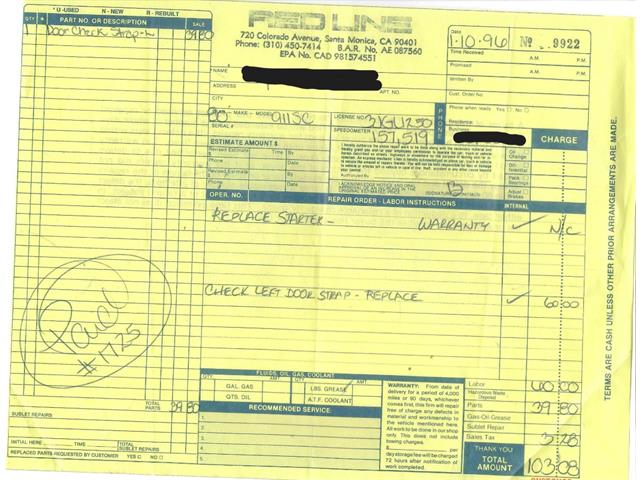 * U -USED N - NEW R - REBUILT
QTY. # PART NO. OR DESCRIPTION SALE
1 Door Check Strap-L 39 80
RED LINE
720 Colorado Avenue, Santa Monica, CA 90401
Phone: (310) 450-7414 B.A.R. No. AE 087560
EPA No. CAD 981574551
Date 1-10-96 No. 9922
Time Received A.M. P.M.
Promised A.M. P.M.
Written By
Cust. Order No.
Phone when ready Yes No
NAME
ADDRESS APT. NO.
YEAR - MAKE - MODEL 80 911SC
LICENSE NO. 3VGU250
SERIAL #
SPEEDOMETER 157,519
PHONE
Residence:
Business:
CHARGE
ESTIMATE AMOUNT $
Revised Estimate Time
Revised Estimate Time
Phone
Oil Change
OPER. NO. REPAIR ORDER - LABOR INSTRUCTIONS INTERNAL
REPLACE STARTER - WARRANTY ✓ N/C
CHECK LEFT DOOR STRAP - REPLACE ✓ 60.00
Paid
#1725
TERMS ARE CASH UNLESS OTHER PRIOR ARRANGEMENTS ARE MADE.
FLUIDS, OIL, GAS, COOLANT
QTY. AMT. QTY. AMT.
GAL. GAS LBS. GREASE
QTS. OIL A.T.F. COOLANT
RECOMMENDED SERVICE:
1.
2.
3.
4.
5.
WARRANTY: From date of
delivery for a period of 4,000
miles or 90 days, whichever
comes first, this firm will repair
free of charge any defects in
material and workmanship to
the vehicle mentioned here.
All work to be done in our shop
only. This does not include
towing charges.
$ per
day storage fee will be charged
72 hours after notification of
work completed.
Labor 60.00
Hazardous Waste Disposal
Parts 39.80
Gas-Oil-Grease
Sublet Repair
Sales Tax 3.28
THANK YOU
TOTAL AMOUNT 103.08
TOTAL PARTS 39.80
SUBLET REPAIRS
INITIAL HERE TIME TOTAL SUBLET REPAIRS
REPLACED PARTS REQUESTED BY CUSTOMER YES NO